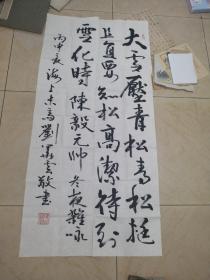 大雪壓青松青松挺
且直要知松高潔待到
雪化時陳毅元帥冬夜雜咏
丙申之夏海上未高劉學云敬書